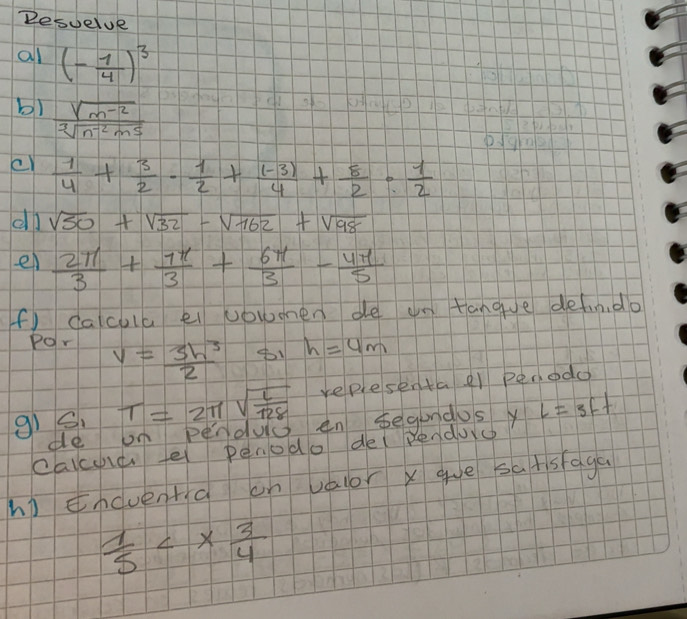 Resuelve
a) (-1/4)^3
b) √m^-2 / ∛n^-2 m^5
c) 1/4 + 3/2 · 1/2 + (-3)/4 + 8/2 ÷ 1/2
d) √50 + √32 - √162 + √98
e) 2π/3 + 7π/3 + 6π/3 - 4π/5
f) Calcula el volumen de un tanque definido
por V = 3h^3/2 si h = 4m
g) Si T = 2π √L/128 representa el periodo
de un péndulo en segundos y L = 3ft
Calcula el periodo del pendulo
h) Encuentra un valor x que satisfaga
1/5 < x 3/4